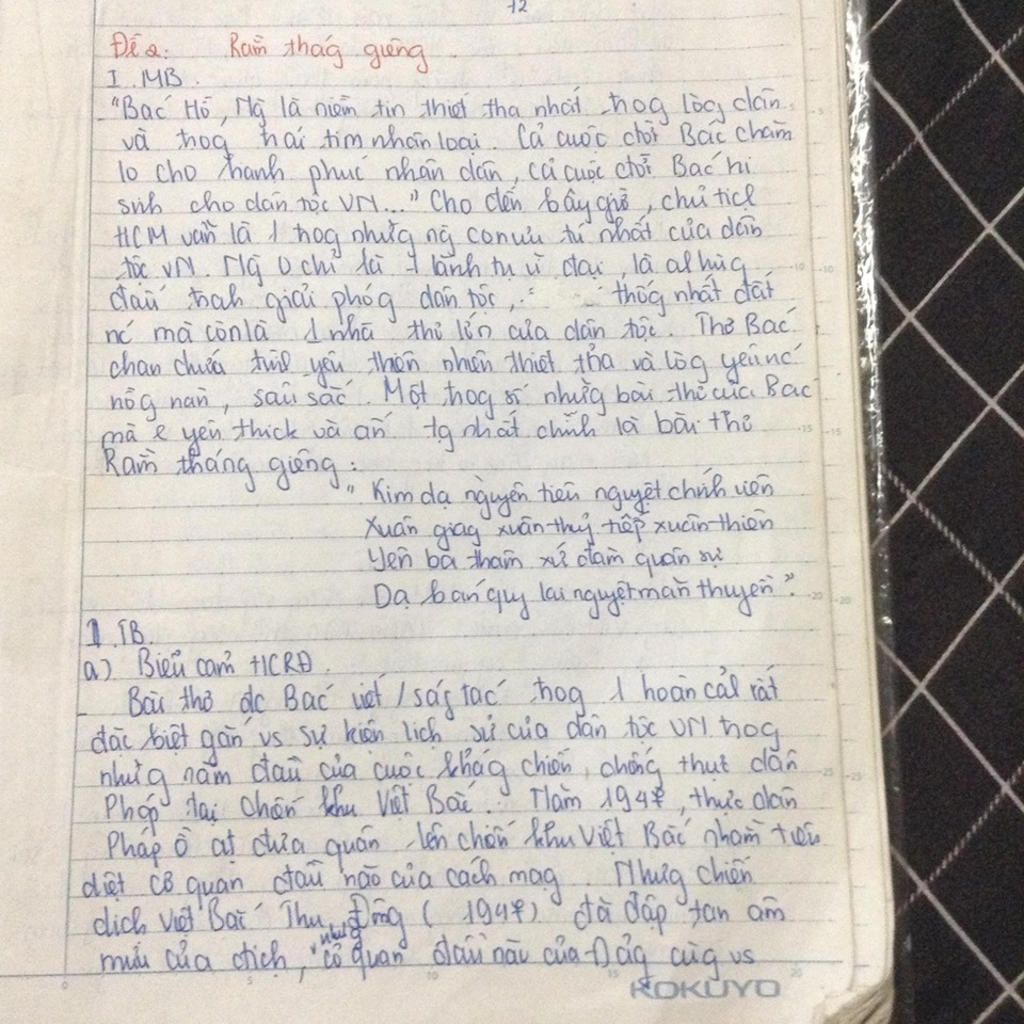 12
Đề 2. Rằm thág giêng
I. MB.
"Bác Hồ, Ng là niềm tin thiết tha nhất trog lòg dân
và trog trái tim nhân loại. Cả cuộc đời Bác chăm
lo cho hạnh phúc nhân dân, cả cuộc đời Bác hi
sinh cho dân tộc VN..." Cho đến bây giờ, chủ tịch
HCM vẫn là 1 trog nhữg ng con ưu tú nhất của dân
tộc VN. Ng 0 chỉ là 1 lãnh tụ vĩ đại, là a hùg
đấu trah giải phóg dân tộc, thốg nhất đất
nc mà còn là 1 nhà thơ lớn của dân tộc. Thơ Bác
chan chứa tìh yêu thiên nhiên thiết tha và lòg yêu nc
nồg nàn, sâu sắc. Một trog số nhữg bài thơ của Bác
mà e yêu thích và ấn tg nhất chính là bài thơ
Rằm tháng giêng:
"Kim dạ nguyên tiêu nguyệt chính viên
Xuân giag xuân thuỷ tiếp xuân thiên
Yên ba thâm xứ đàm quân sự
Dạ bán quy lai nguyệt mãn thuyền".
II. TB.
a) Biểu cảm HCRĐ.
Bài thơ đc Bác viết / ság tác trog 1 hoàn cảh rất
đặc biệt gắn vs sự kiện lịch sử của dân tộc VN trog
nhữg năm đầu của cuộc khág chiến, chốg thực dân
Pháp tại chiến khu Việt Bắc. Năm 1947, thực dân
Pháp ồ ạt đưa quân lên chiến khu Việt Bắc nhằm tiêu
diệt cơ quan đầu não của cách mạg. Nhưg chiến
dịch Việt Bắc Thu Đông (1947) đã đập tan âm
mưu của địch, nhưg cơ quan đầu não của Đảg cùg vs
KOKUYO